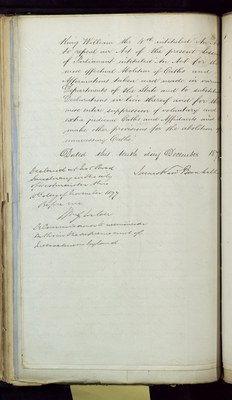 King William the 4th intituled An Act
to repeal an Act of the present Session
of Parliament intituled An Act for the
more effectual Abolition of Oaths and
Affirmations taken and made in various
Departments of the State and to substitute
Declarations in lieu thereof and for the
more entire suppression of voluntary and
extra judicial Oaths and Affidavits and
make other provisions for the abolition of
unnecessary Oaths
Dated this day December
Declared at
in the city
of Westminster this
day of November
Before me
A Commissioner to administer
Oaths in the Supreme Court of
Judicature England